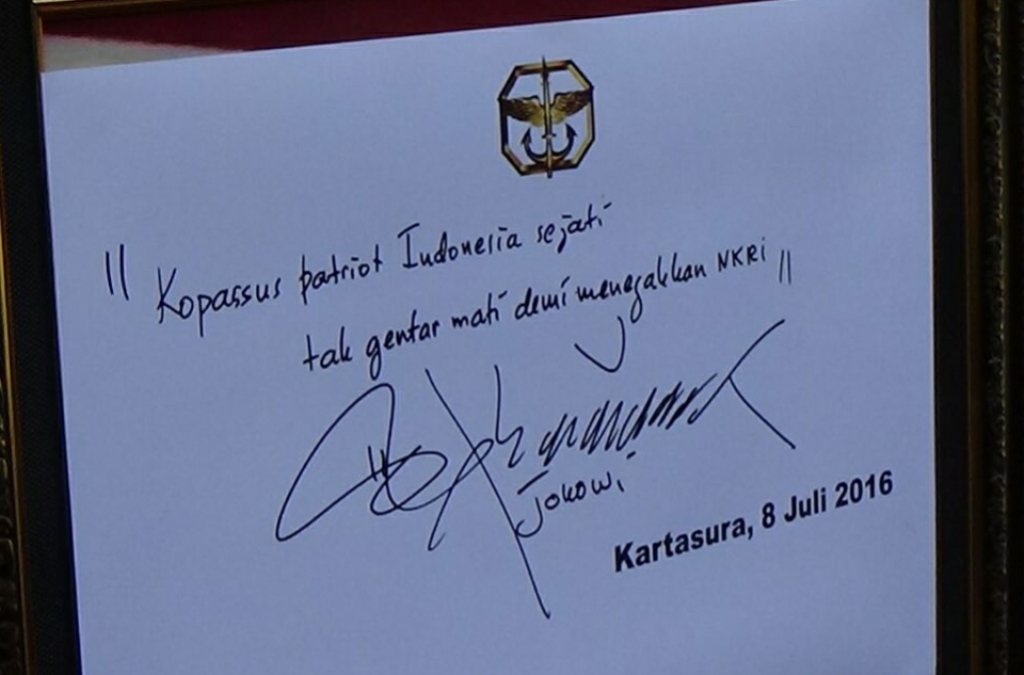 " Kopassus patriot Indonesia sejati
tak gentar mati demi menegakkan NKRi "
Jokowi
Kartasura, 8 Juli 2016